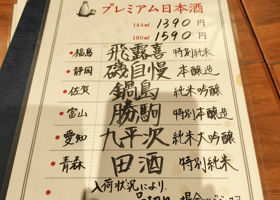 プレミアム日本酒
144ml 1390円
180ml 1590円
・福島 飛露喜 特別純米
・静岡 磯自慢 本醸造
・佐賀 鍋島 純米吟醸
・富山 勝駒 特別本醸造
・愛知 九平次 純米大吟醸
・青森 田酒 特別純米
入荷状況により、
品切れ 場合